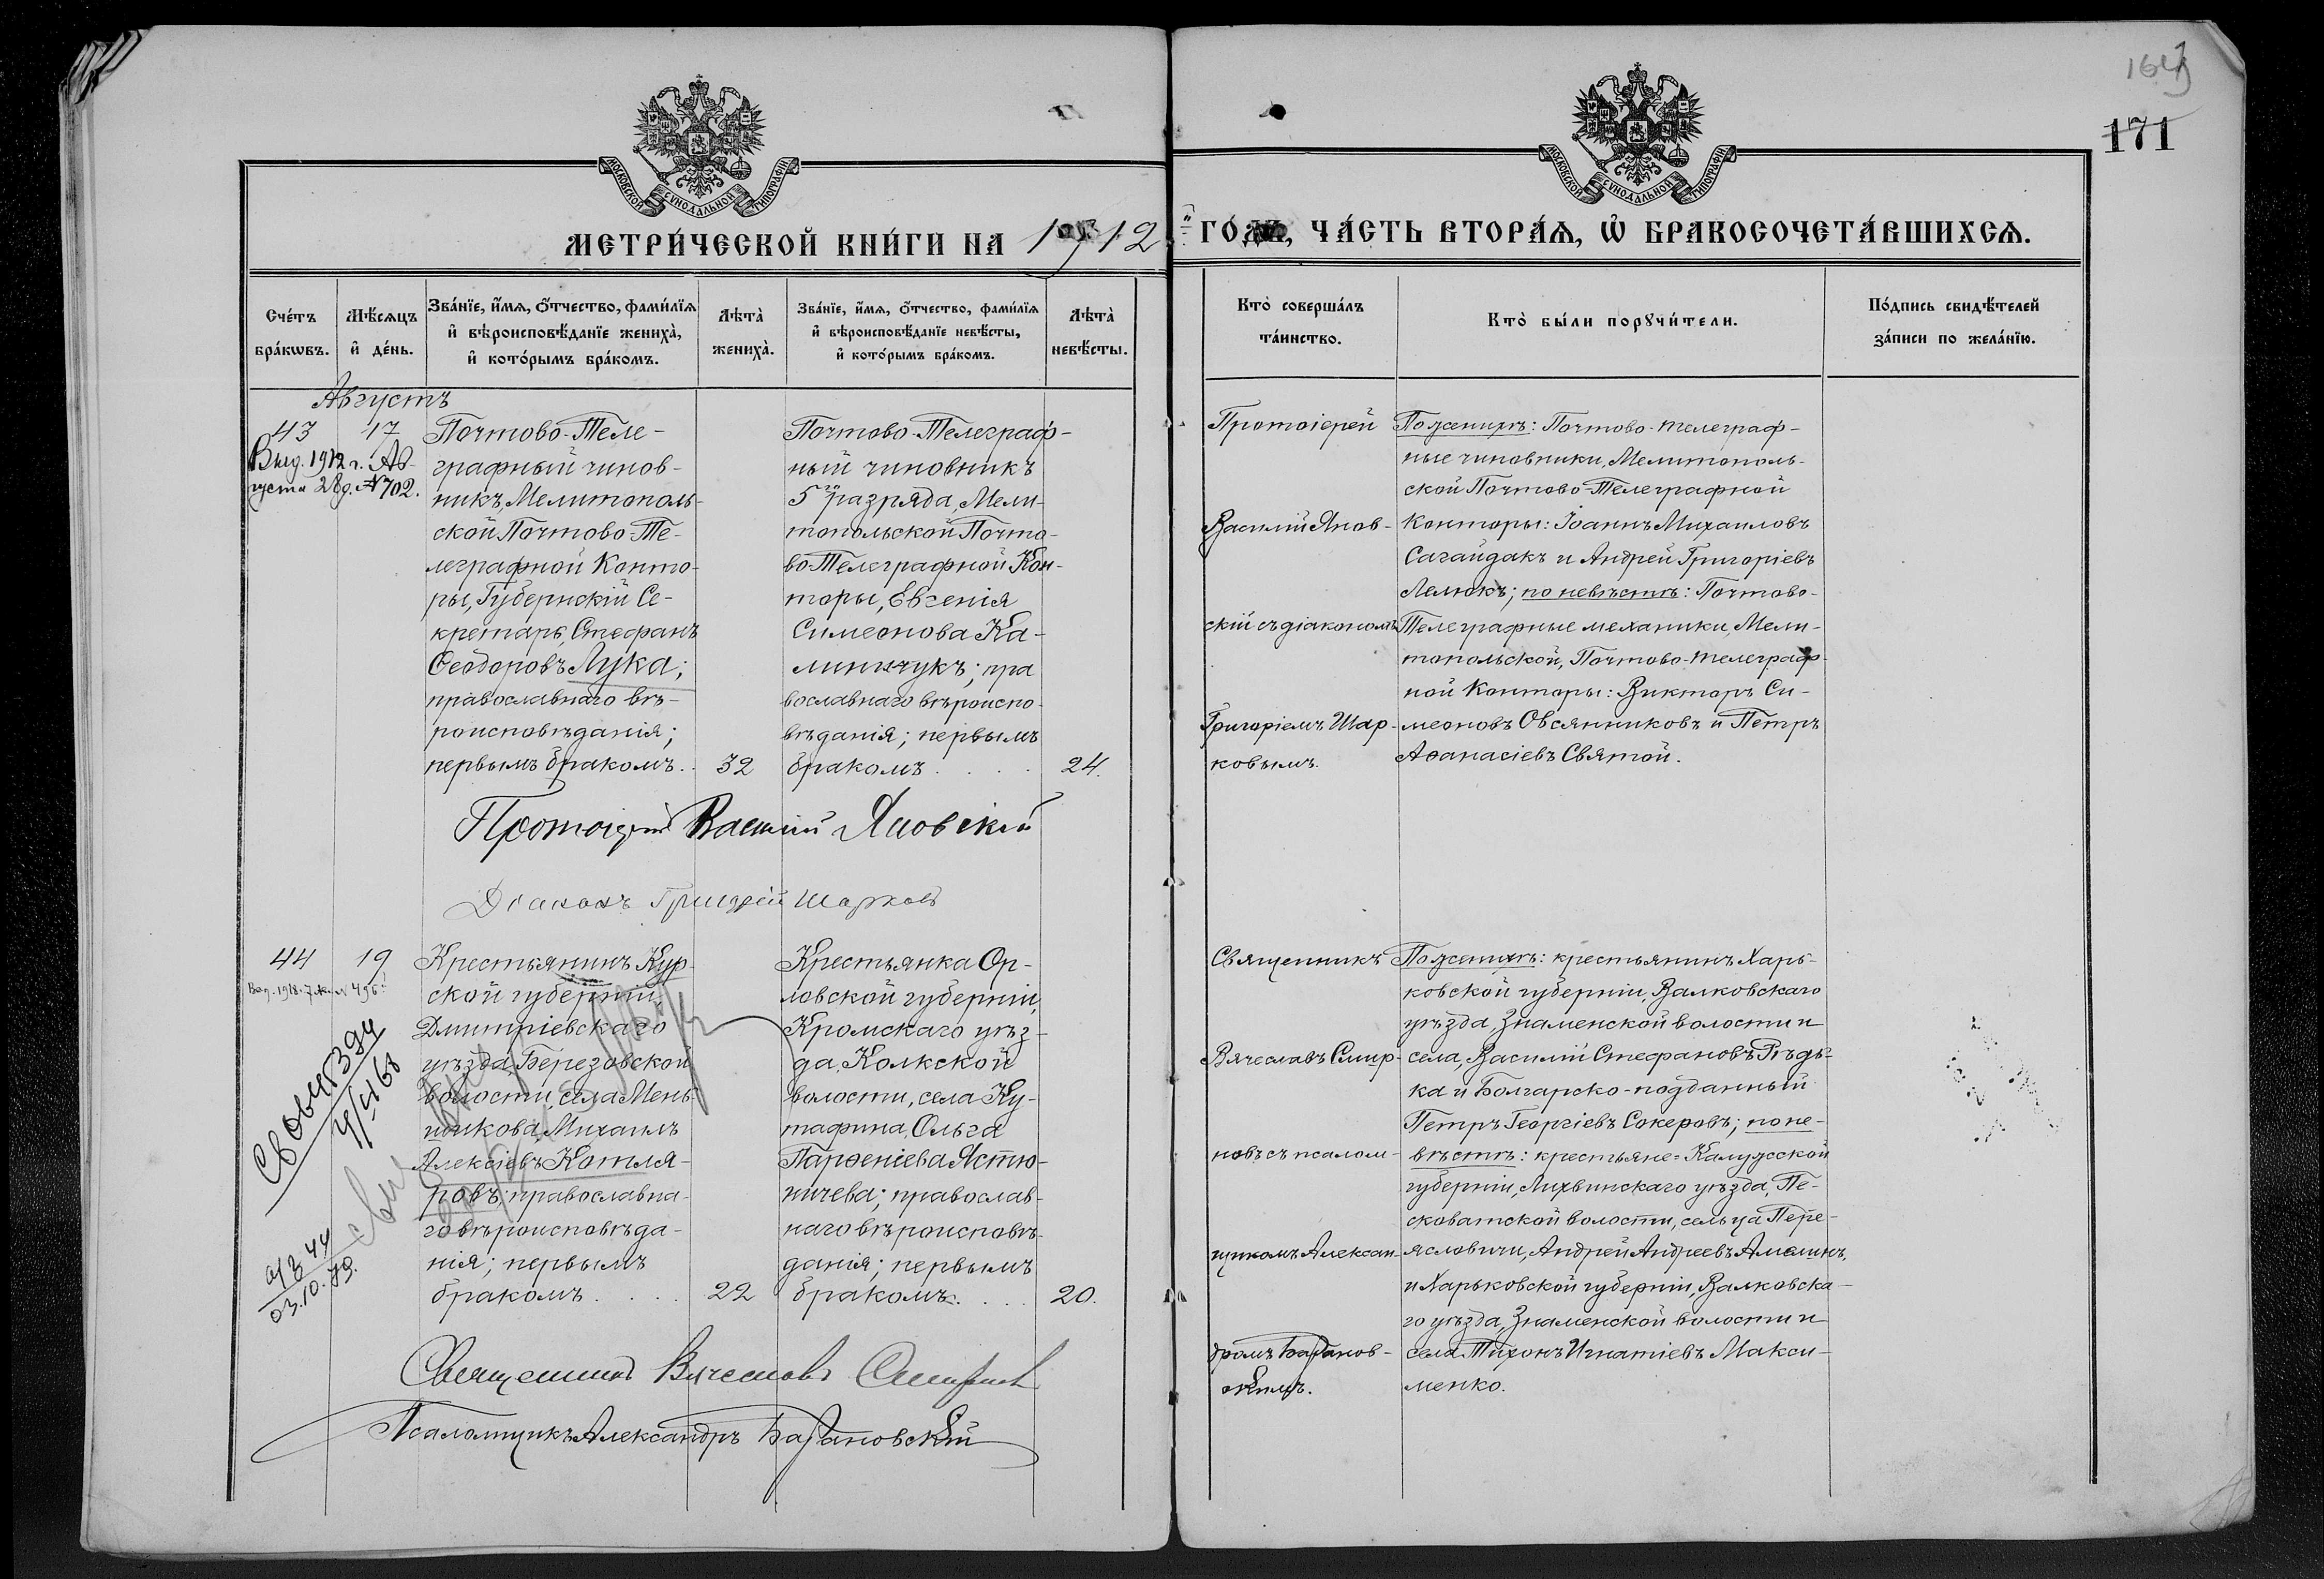 1643
171
МОСКОВСКОЙ СУНОДАЛЬНОЙ ТИПОГРАФІИ
МОСКОВСКОЙ СУНОДАЛЬНОЙ ТИПОГРАФІИ
МЕТРИ́ЧЕСКОЙ КНИ́ГИ НА 1912
ГО́ДЪ, ЧА́СТЬ ВТОРА́Ѧ, Ѽ БРАКОСОЧЕТА́ВШИХСѦ.
Сче́тъ
бра́кѡвъ.
Мѣ́сѧцъ
и҆ де́нь.
Зва́нїе, и҆́мѧ, ѻ҆́тчество, фами́лїѧ
и҆ вѣроисповѣ́данїе жениха̀,
и҆ кото́рымъ бра́комъ.
Лѣта̀
жениха̀.
Зва́нїе, и҆́мѧ, ѻ҆́тчество, фами́лїѧ
и҆ вѣроисповѣ́данїе невѣ́сты,
и҆ кото́рымъ бра́комъ.
Лѣта̀
невѣ́сты.
Кто̀ соверша́лъ
та́инство.
Кто̀ бы́ли порꙋчи́тели.
По́дпись свидѣ́телей
за́писи по жела́нїю.
Августъ
43
17
Выд. 1912 г. Ав-
густа 28 д. № 702.
Почтово-Теле-
графный чинов-
никъ, Мелитополь-
ской Почтово-Те-
леграфной Конто-
ры, Губернскій Се-
кретарь, Стефанъ
Ѳеодоровъ Лука;
православнаго вѣ-
роисповѣданія;
первымъ бракомъ..
32
Почтово-Телеграф-
ный чиновникъ
5го разряда, Мели-
топольской Почто-
во-Телеграфной Кон-
торы, Евгенія
Симеонова Ка-
линичукъ; пра
вославнаго вѣроиспо-
вѣданія; первымъ
бракомъ....
24.
Протоіерей
Василій Янов-
скій съ діакономъ
Григоріемъ Шар-
ковымъ.
По женихѣ: Почтово-телеграф-
ные чиновники, Мелитополь-
ской Почтово-Телеграфной
Конторы: Іоаннъ Михаиловъ
Сагайдакъ и Андрей Григоріевъ
Лелюкъ; по невѣстѣ: Почтово-
Телеграфные механики, Мели-
топольской, Почтово-телеграф-
ной Конторы: Викторъ Си-
меоновъ Овсянниковъ и Петръ
Аѳанасіевъ Святой.
Протоіерей Василій Яновскій
Діаконъ Григорій Шарковъ
44
19
№ 496
Крестьянинъ Кур-
ской губерніи,
Дмитріевскаго
уѣзда, Березовской
волости, села Мень-
шикова, Михаилъ
Алексіевъ Котля-
ровъ; православна-
го вѣроисповѣда-
нія; первымъ
бракомъ....
22
Крестьянка Ор-
ловской губерніи,
Кромскаго уѣз-
да, Колкской
волости, села Ку-
тафина, Ольга
Парѳеніева Ястю-
ничева; православ-
наго вѣроисповѣ-
данія; первымъ
бракомъ....
20.
Священникъ
Вячеславъ Смир-
новъ съ псалом-
щикомъ Алексан-
дромъ Баранов-
скимъ.
По женихѣ: крестьянинъ Харь-
ковской губерніи, Валковскаго
уѣзда, Знаменской волости и
села, Василій Стефановъ Рѣдь-
ка и Болгарско-подданный
Петръ Георгіевъ Сокеровъ; по не-
вѣстѣ: крестьяне=Калужской
губерніи, Лихвинскаго уѣзда, Пе-
сковатской волости, сельца Пере-
ясловичи, Андрей Андреевъ Амелинъ,
и Харьковской губерніи, Валковска-
го уѣзда, Знаменской волости и
села Тихонъ Игнатіевъ Макси-
менко.
03.10.79.
Священникъ Вячеславъ Смирновъ
Псаломщикъ Александръ Барановскій